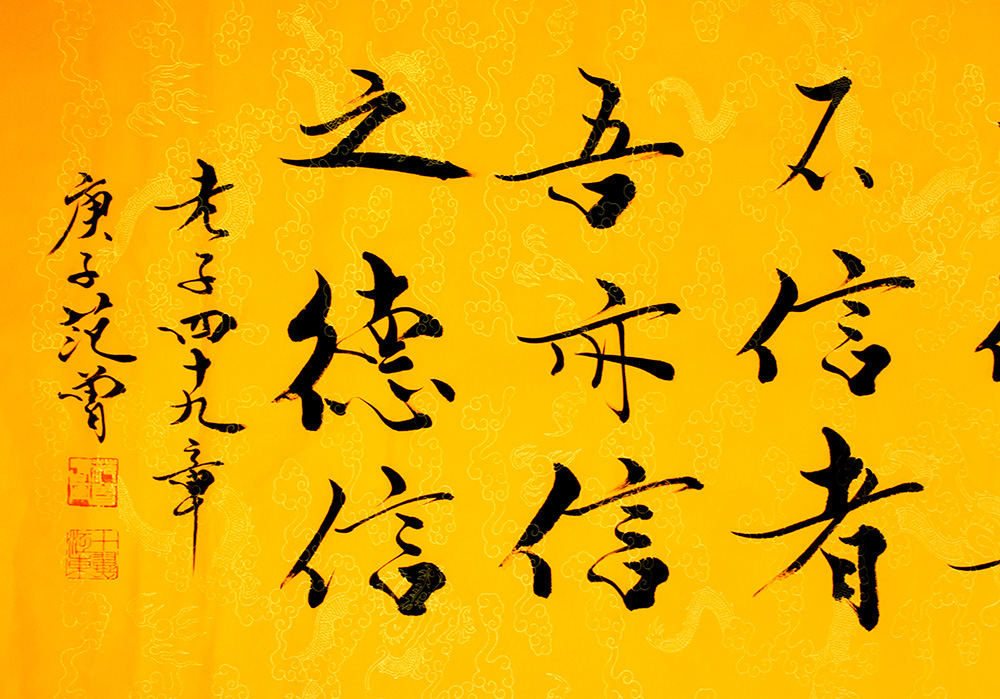 不信者
吾亦信
之德信
老子四十九章
庚子范曾